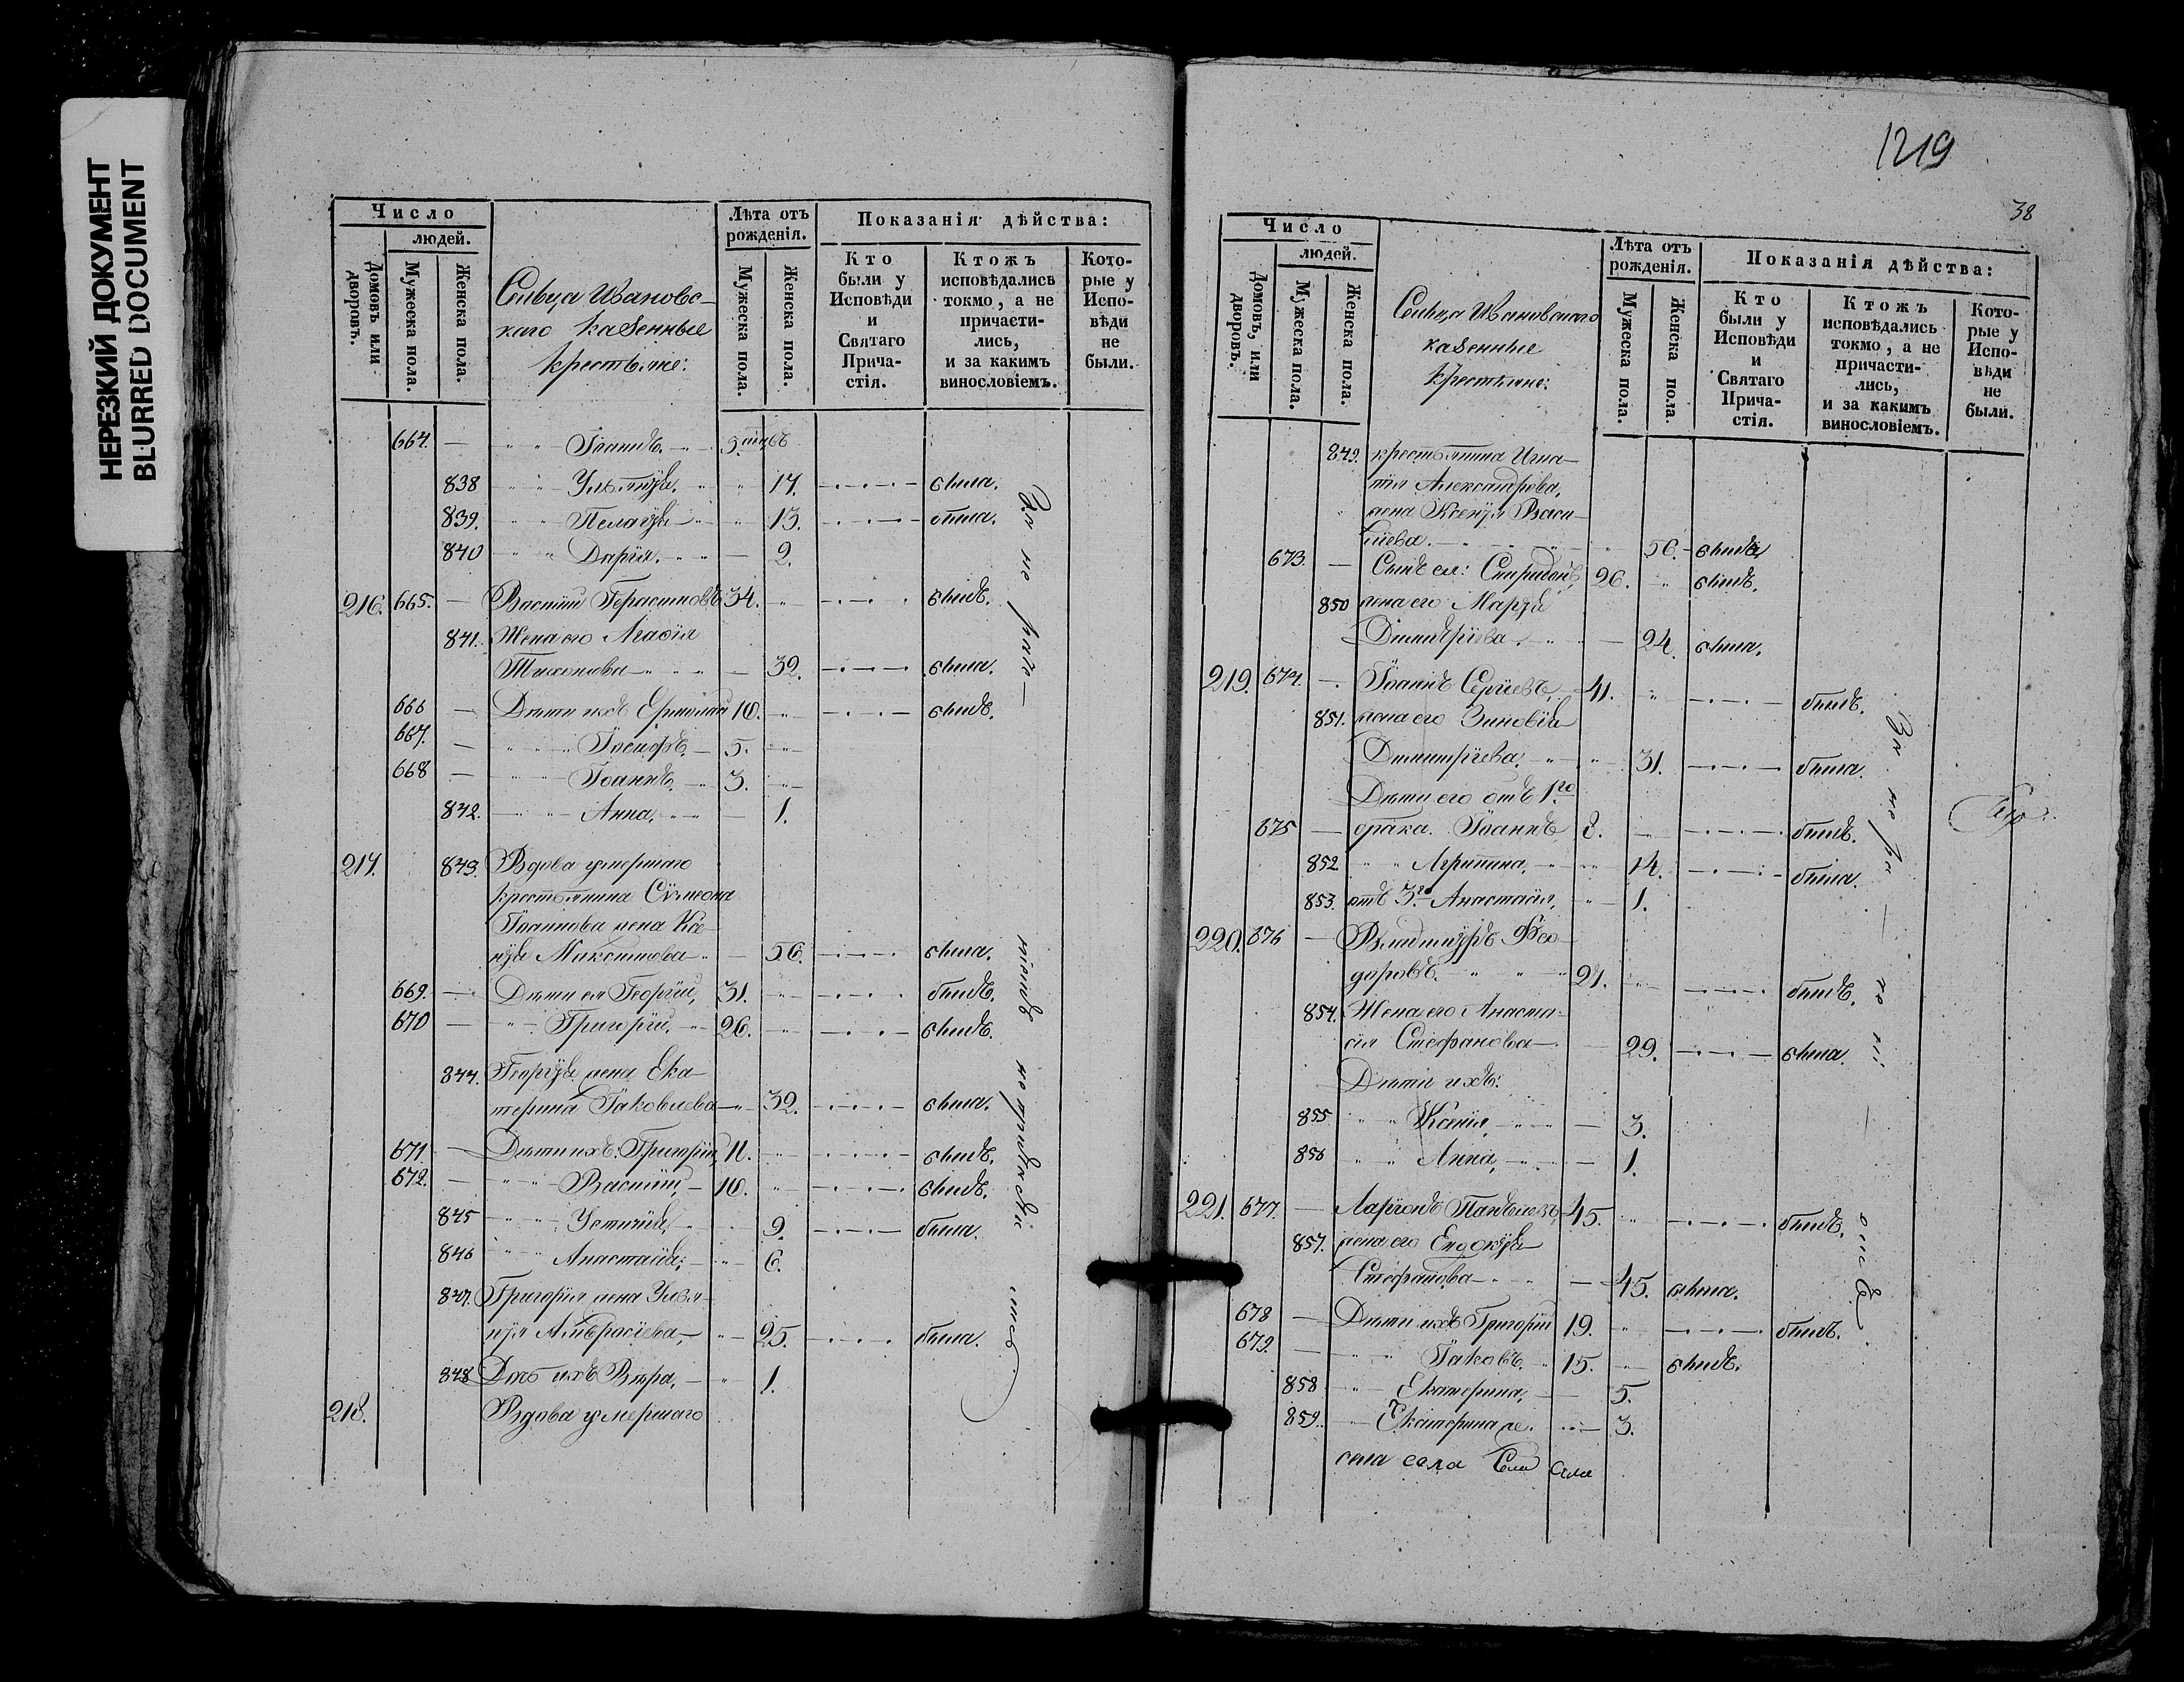 НЕРЕЗКИЙ ДОКУМЕНТ
BLURRED DOCUMENT
Число
людей.
Домовъ или дворовъ.
Мужеска пола.
Женска пола.
Сельца Ивановс-
каго казенные
крестьяне:
Лѣта отъ рожденія.
Мужеска пола.
Женска пола.
Показанія дѣйства:
Кто были у Исповѣди и Святаго Прича-стія.
Ктожъ исповѣдались токмо, а не причасти-лись, и за какимъ винословіемъ.
Кото-рые у Испо-вѣди не были.
664. — " " Іоаннъ. — "
838 " " 17. была.
839. " " Пелагія — " 13. была.
840 " " Дарія. " " — 2.
216. 665. — Василій Герасимовъ 34. былъ.
841. Жена его Агафія
Тихонова — " " — 32. была.
666 — Дѣти ихъ Ермолай 10. былъ.
667. — " " Іосифъ. — 5.
668 — " " Іоаннъ. — 3.
842. — " Анна. " " — 1.
217. 843. Вдова умершаго
крестьянина Сѵмеона
Іоаннова жена Ксе-
нія Максимова — " — 56. была.
669. — Дѣти ея Георгій, 31. былъ.
670 — " Григорій, — " 26. былъ.
844. Георгія жена Ека-
терина Іаковлева — " 32. была.
671 — Дѣти ихъ: Григорій, 11. былъ.
672. — " " Василій, — 10. былъ.
845 — " " Устинія, " 9. была.
846 " " Анастасія; — " 6.
847. Григорія жена Улья-
нія Амвросіева, — " 25. была.
848 Дочь ихъ Вѣра, — " 1.
218. Вдова умершаго
1219
38
Число
людей.
Домовъ, или дворовъ.
Мужеска пола.
Женска пола.
Сельца Ивановскаго
казенные
крестьяне:
Лѣта отъ рожденія.
Мужеска пола.
Женска пола.
Показанія дѣйства:
Кто были у Исповѣди и Святаго Прича-стія.
Ктожъ исповѣдались токмо, а не причасти-лись, и за какимъ винословіемъ.
Кото-рые у Испо-вѣди не были.
849. крестьянина Игна-
тія Александрова,
жена Ксенія Васи-
ліева. — " 56. — была
673. — Сынъ ея: Спиридонъ, 26. " былъ.
850 жена его Марѳа
Димитріева. " — 24. была.
219. 674. — Іоаннъ Сергіевъ, 41. былъ.
851. жена его Зиновія
Димитріева, " " 31. была.
Дѣти его отъ 1го
675 — брака. Іоаннъ 8. былъ.
852 " " Агрипина, — " 14. была.
853. отъ 3го Анастасія, " — 1.
220. 676 — Владиміръ Ѳео-
доровъ. " " — " 27. былъ.
854. Жена его Анаста-
сія Стефанова — 29. была.
Дѣти ихъ:
855 " " Ксенія, — " — 3.
856 " " Анна, — " — 1.
221. 677. — Ларіонъ 45. былъ.
857. жена его Евдокія
Стефанова — " — 45. была.
678 — Дѣти ихъ Григорій 19. былъ.
679. — " " Іаковъ. " 15. былъ.
858 " — Екатерина, — 5.
859. — Екатерина же. — 3.
села села Села Села